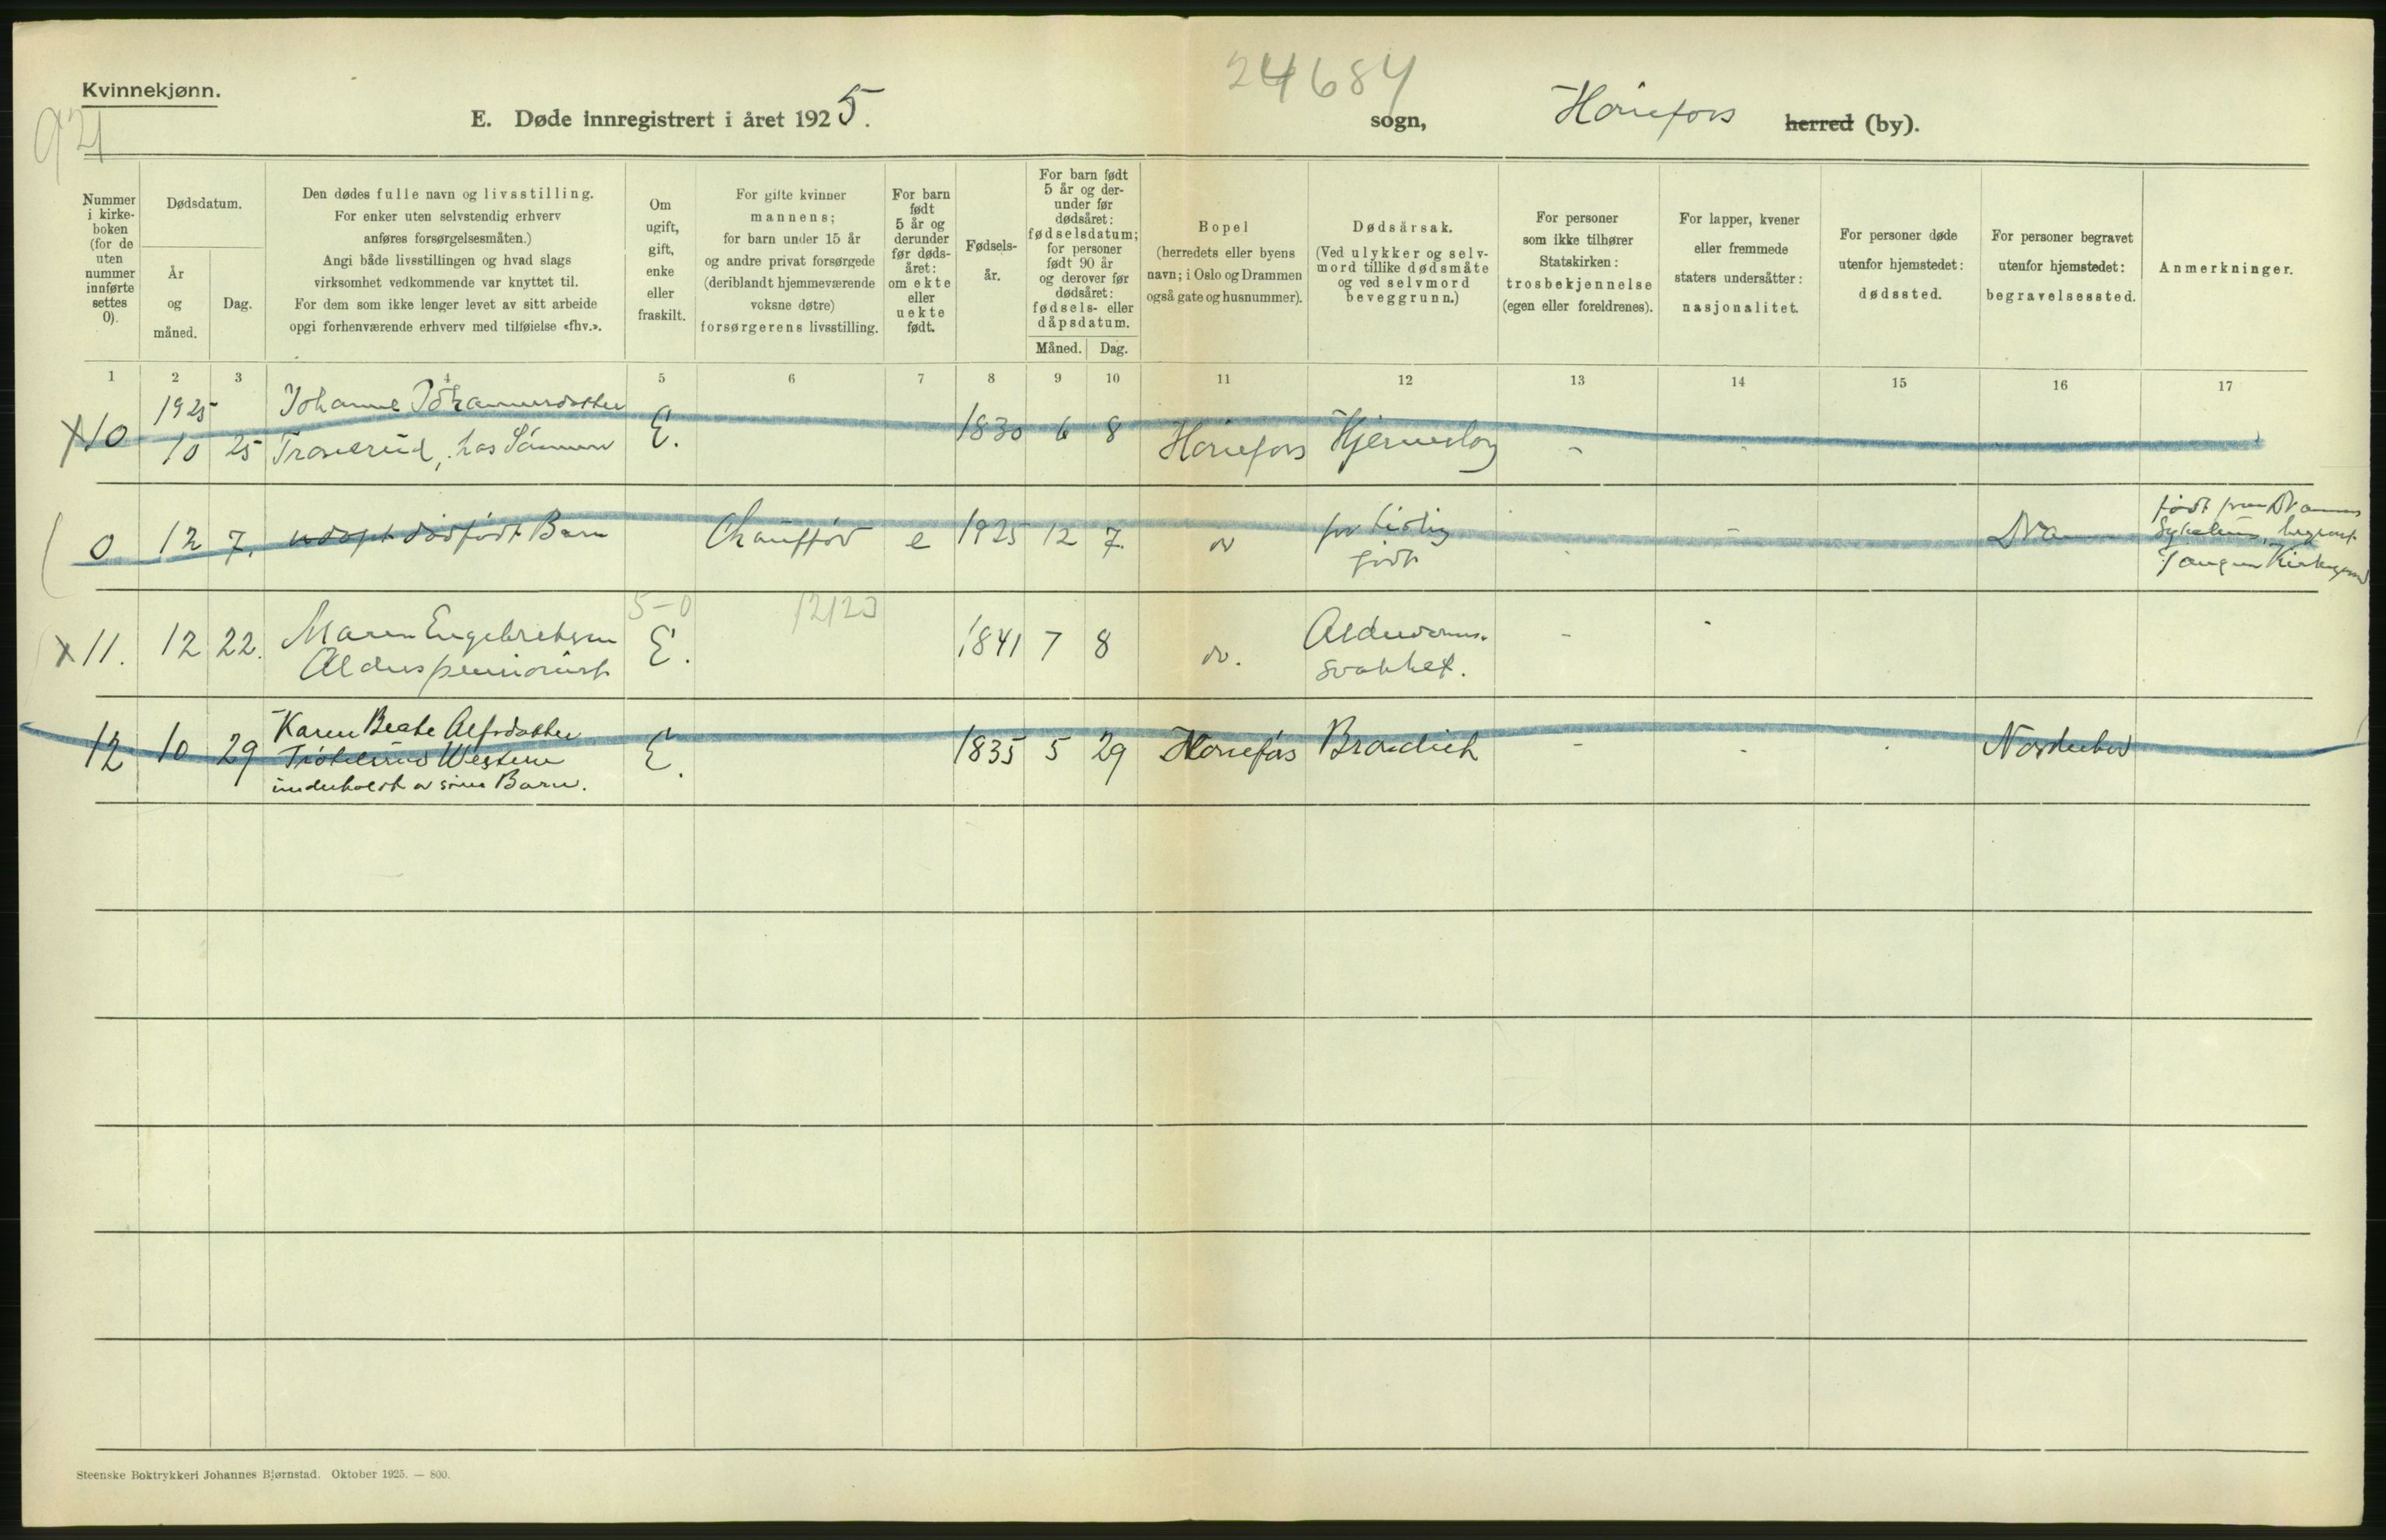 Kvinnekjønn.
921
E. Døde innregistrert i året 1925.
24684
sogn, Hønefoss herred (by).
Nummer i kirke- boken (for de uten nummer innførte settes 0).
Dødsdatum.
År og måned.
Dag.
Den dødes fulle navn og livsstilling.
For enker uten selvstendig erhverv
anføres forsørgelsesmåten.)
Angi både livsstillingen og hvad slags
virksomhet vedkommende var knyttet til.
For dem som ikke lenger levet av sitt arbeide
opgi forhenværende erhverv med tilføielse «fhv.».
Om ugift, gift, enke eller fraskilt.
For gifte kvinner
mannens;
for barn under 15 år
og andre privat forsørgede
(deriblandt hjemmeværende
voksne døtre)
forsørgerens livsstilling.
For barn født 5 år og derunder før døds- året: om ekte eller uekte født.
Fødsels- år.
For barn født 5 år og der- under før dødsåret: fødselsdatum; for personer født 90 år og derover før dødsåret: fødsels- eller dåpsdatum.
Måned. Dag.
Bopel
(herredets eller byens
navn; i Oslo og Drammen
også gate og husnummer).
Dødsårsak.
(Ved ulykker og selv-
mord tillike dødsmåte
og ved selvmord
beveggrunn.)
For personer
som ikke tilhører
Statskirken:
trosbekjennelse
(egen eller foreldrenes).
For lapper, kvener
eller fremmede
staters undersåtter:
nasjonalitet.
For personer døde
utenfor hjemstedet:
dødssted.
For personer begravet
utenfor hjemstedet:
begravelsessted.
Anmerkninger.
1 2 3 4 5 6 7 8 9 10 11 12 13 14 15 16 17
1925 Johanne Johannesdatter
x10 10 25 Tranerud, hos Sønnen E. 1830 6 8 Hønefoss Hjerneslag - -
0 12 7. dødfødt Barn Chauffør e 1925 12 7. do for tidlig født - - Dra
født paa Drammens
Sykehus, begravet
Tangen Kirkegaard
5-0 12123
x11. 12 22. Maren Engebretsen E. 1841 7 8 do. Alderdoms- - -
Alderspensionist svakhet.
12 10 29 Karen Beate Alfsdatter E. 1835 5 29 Hønefos - - Norderhov
Western
underholdt av sine Barn.
Steenske Boktrykkeri Johannes Bjørnstad. Oktober 1925. — 800.